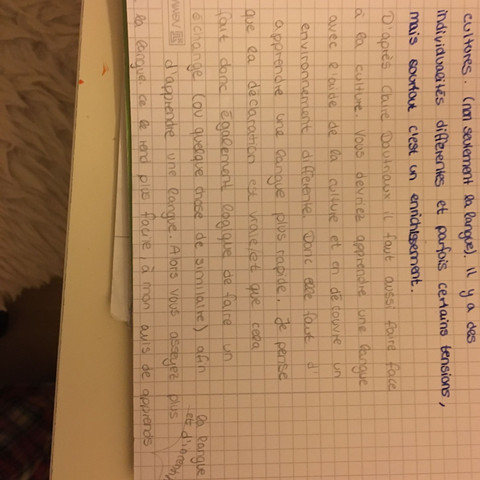 cultures. (non seulement la langue). il y a des
individualités différentes et parfois certains tensions,
mais sourtout c'est un enrichissement.
D'après Claire Dautriaux il faut aussi faire face
à la culture. Vous devriez apprendre une langue
avec l'aide de la culture et en découvre un
environnement différente. Donc elle faut d'
apprendre une langue plus rapide. Je pense
que la déclaration est vraie, et que cela
fait donc également logique de faire un
échange (ou quelque chose de similaire) afin
d'apprendre une langue. Alors vous assayez plus
la langue
la langue ce le rend plus faire, à mon avis de apprendre